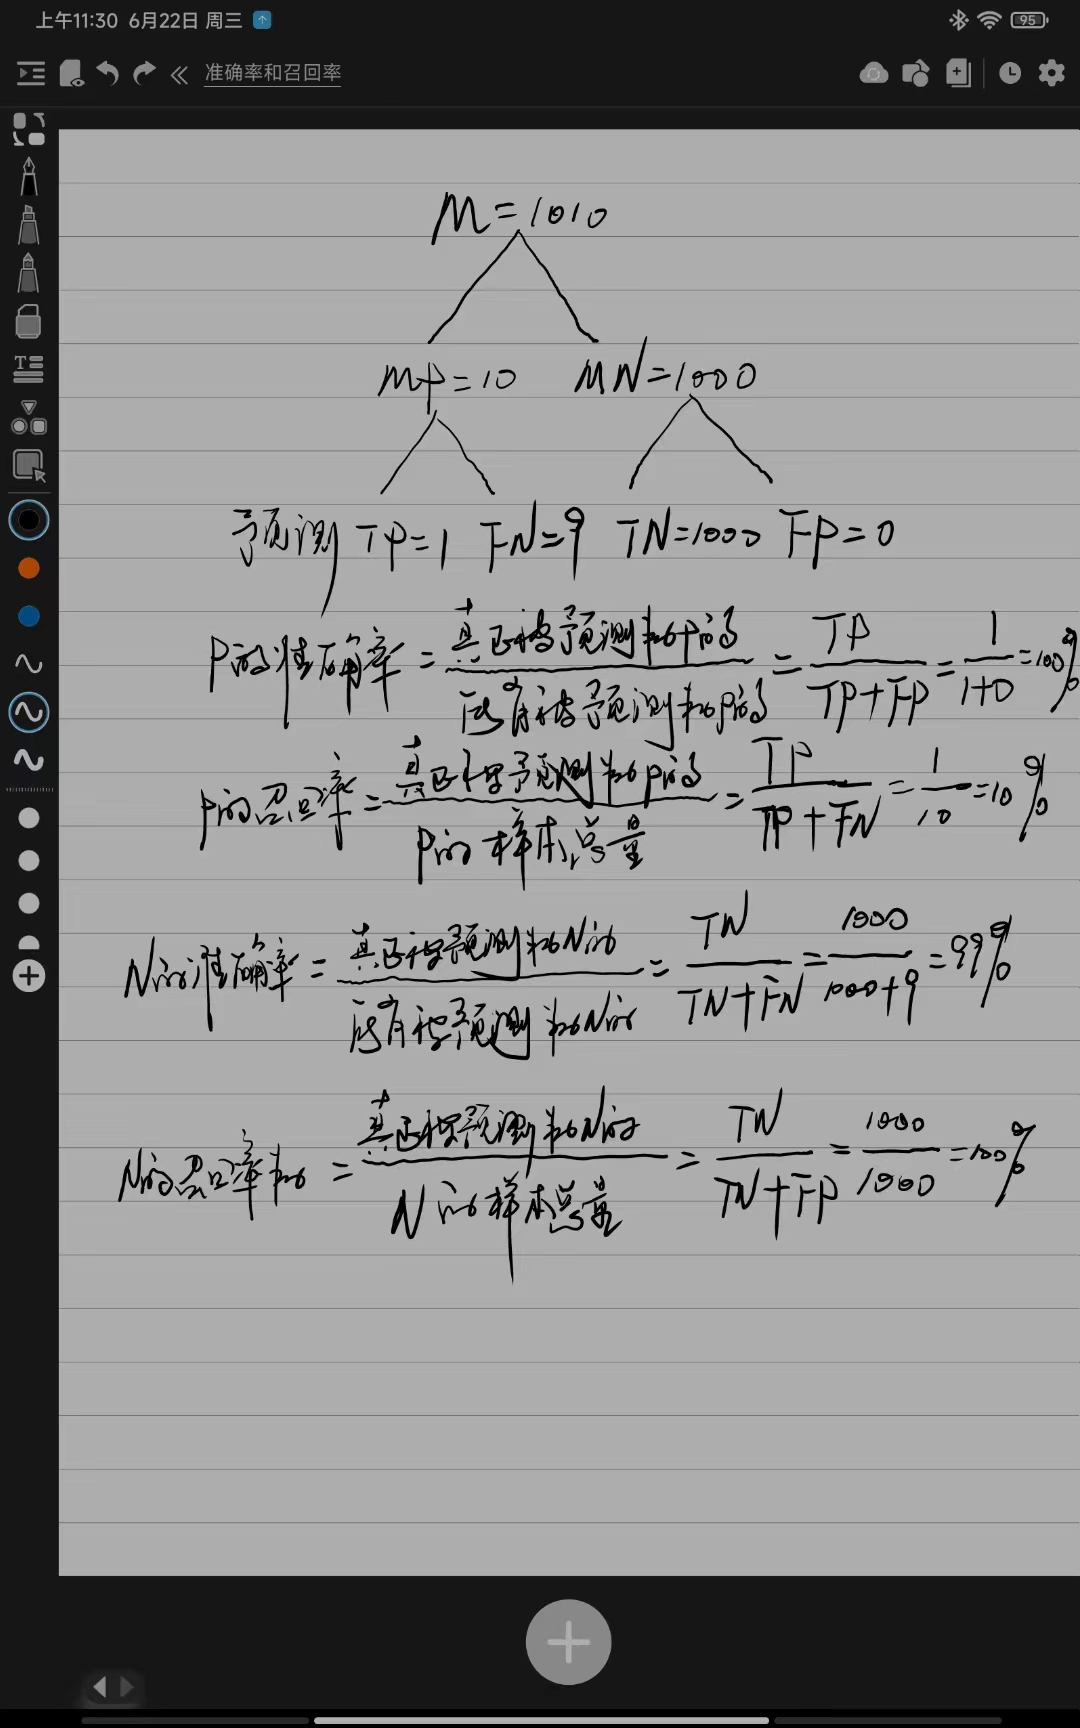 上午11:30 6月22日 周三
95
准确率和召回率
M=1010
MP=10 MN=1000
预测 TP=1 FN=9 TN=1000 FP=0
P的准确率 = 真正被预测为P的 / 所有被预测为P的 = TP / TP+FP = 1 / 1+0 = 100%
P的召回率 = 真正被预测为P的 / P的样本总量 = TP / TP+FN = 1 / 10 = 10%
N的准确率 = 真正被预测为N的 / 所有被预测为N的 = TN / TN+FN = 1000 / 1000+9 = 99%
N的召回率为 = 真正被预测为N的 / N的样本总量 = TN / TN+FP = 1000 / 1000 = 100%